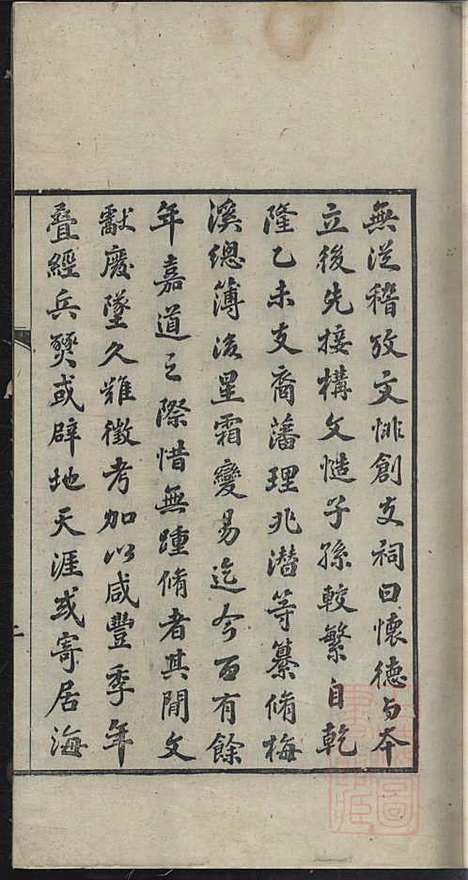 無從稽攷文悱創支祠曰懷德与本
立後先接構文愷子孫較繁自乾
隆乙未支裔藩理兆潛等纂脩梅
溪總簿後星霜變易迄今百有餘
年嘉道之際惜無踵脩者其間文
獻廢墜久難徵考加以咸豐季年
疊經兵燹或辟地天涯或寄居海